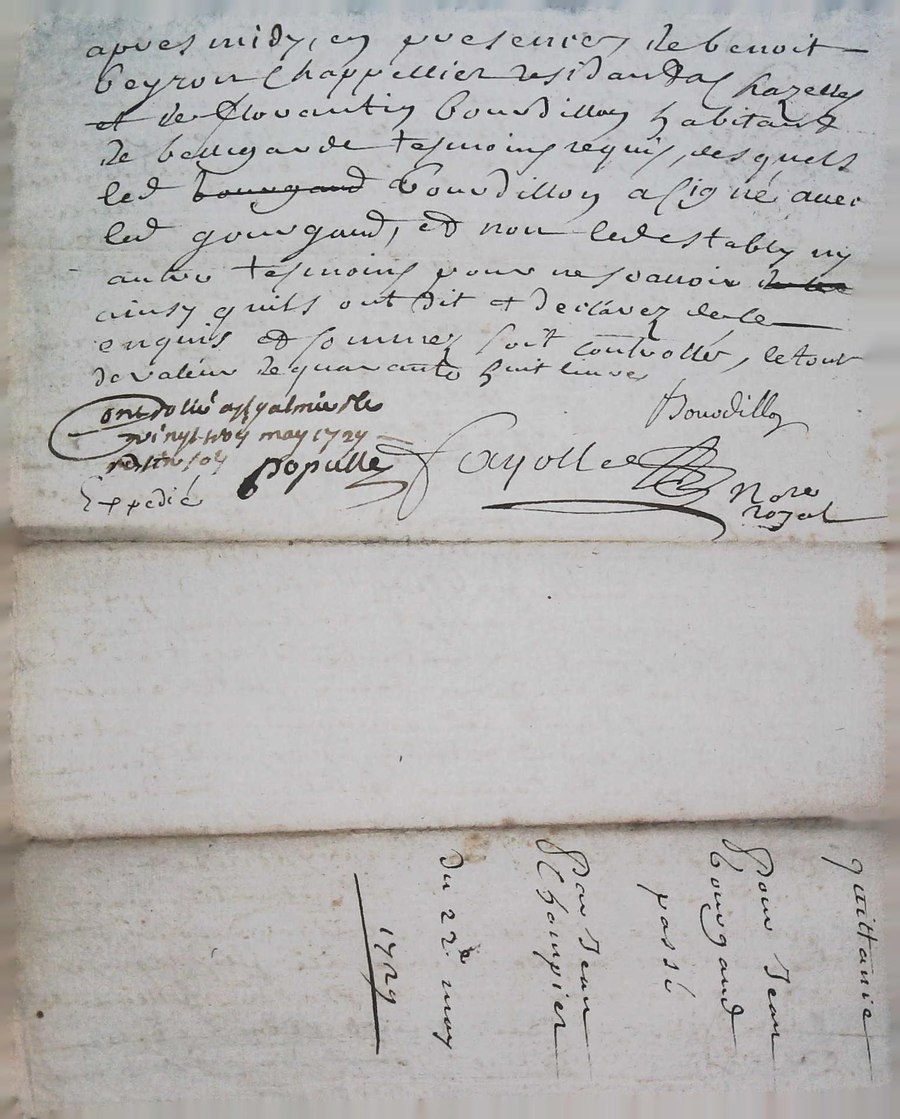 apres midy, en presences de benoit
beyron Chappellier residand a Chazelles
et de florantin bourdillon habitant
de bellegarde tesmoins requis, desquels
led bourgand bourdillon a signé avec
led gourgand, et non led estably ny
autre tesmoins pour ne scavoir
ainsy quils ont dit et declarez de le
enquis et sommez soit controllé, le tout
de valeur de quarante huit livres
Bourdillon
Controllé a St galmier le
vingt trois may 1729
Populle
Fayolle Nore
royal
Expedié
quittance
Pour Jean
bourgand
passé
Par Jean
Choupier
du 22e may
1729